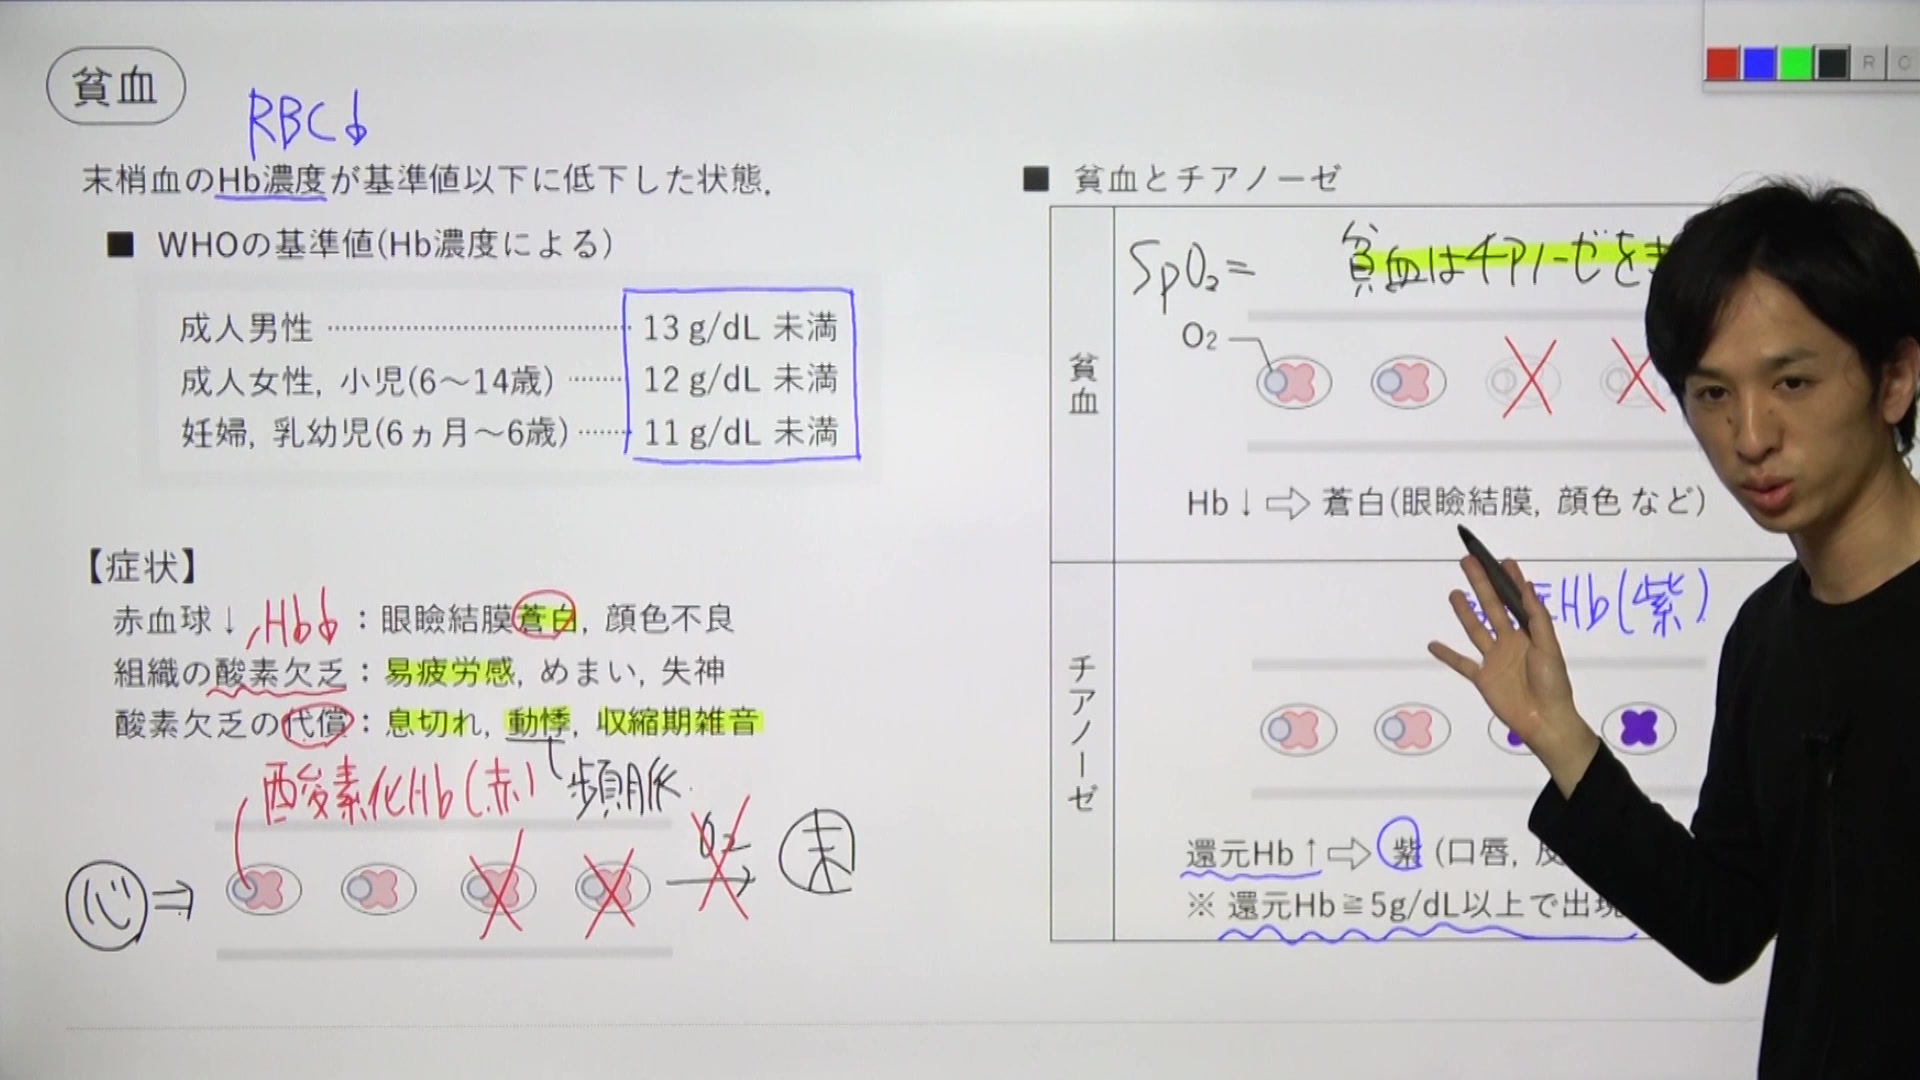 貧血
RBC↓
末梢血のHb濃度が基準値以下に低下した状態.
■ WHOの基準値(Hb濃度による)
成人男性 …… 13 g/dL 未満
成人女性, 小児(6〜14歳) …… 12 g/dL 未満
妊婦, 乳幼児(6ヵ月〜6歳) …… 11 g/dL 未満
【症状】
赤血球↓, Hb↓ : 眼瞼結膜蒼白, 顔色不良
組織の酸素欠乏 : 易疲労感, めまい, 失神
酸素欠乏の代償 : 息切れ, 動悸, 収縮期雑音
酸素化Hb(赤) 頻脈
心 ⇒ O₂ → 末
■ 貧血とチアノーゼ
貧血
SpO₂= 貧血はチアノーゼをき
O₂
Hb↓⇨ 蒼白(眼瞼結膜, 顔色 など)
チアノーゼ
元Hb(紫)
還元Hb↑⇨ 紫 (口唇,
※ 還元Hb≧5g/dL以上で出現
R